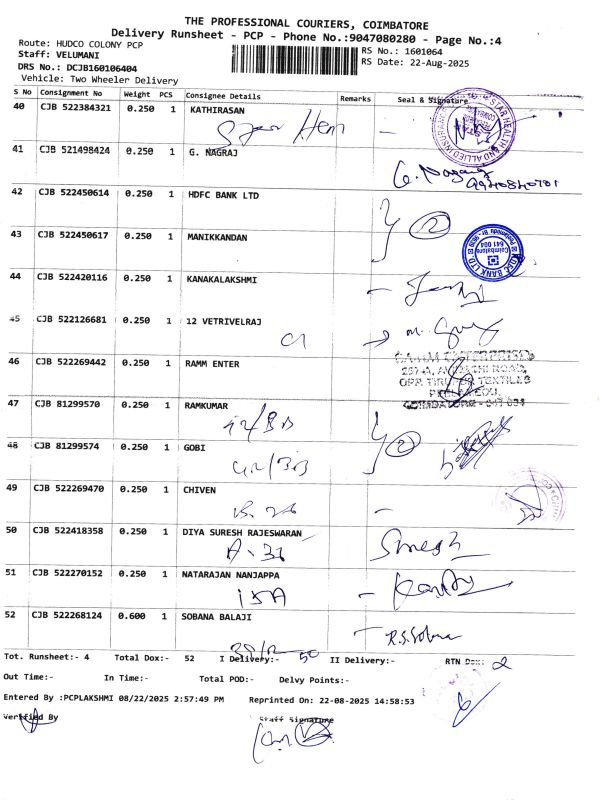 THE PROFESSIONAL COURIERS, COIMBATORE
Delivery Runsheet - PCP - Phone No.:9047080280 - Page No.:4
Route: HUDCO COLONY PCP
RS No.: 1601064
Staff: VELUMANI
RS Date: 22-Aug-2025
DRS No.: DCJB160106404
Vehicle: Two Wheeler Delivery
S No Consignment No Weight PCS Consignee Details Remarks Seal & Signature
40 CJB 522384321 0.250 1 KATHIRASAN
STAR HEALTH AND ALLIED INSURANCE
41 CJB 521498424 0.250 1 G. NAGRAJ
G. Nagaraj
42 CJB 522450614 0.250 1 HDFC BANK LTD
2
43 CJB 522450617 0.250 1 MANIKKANDAN
HDFC BANK LTD
Coimbatore
641 004
44 CJB 522420116 0.250 1 KANAKALAKSHMI
45 CJB 522126681 0.250 1 12 VETRIVELRAJ
46 CJB 522269442 0.250 1 RAMM ENTER
OPP. TEXTILES
COIMBATORE - 641 004
47 CJB 81299570 0.250 1 RAMKUMAR
2
48 CJB 81299574 0.250 1 GOBI
49 CJB 522269470 0.250 1 CHIVEN
50 CJB 522418358 0.250 1 DIYA SURESH RAJESWARAN
Suresh
51 CJB 522270152 0.250 1 NATARAJAN NANJAPPA
52 CJB 522268124 0.600 1 SOBANA BALAJI
R.S. Sobana
Tot. Runsheet:- 4 Total Dox:- 52 I Delivery:- 50 II Delivery:- RTN Dox: 2
Out Time:- In Time:- Total POD:- Delvy Points:-
Entered By :PCPLAKSHMI 08/22/2025 2:57:49 PM Reprinted On: 22-08-2025 14:58:53
Verified By Staff Signature